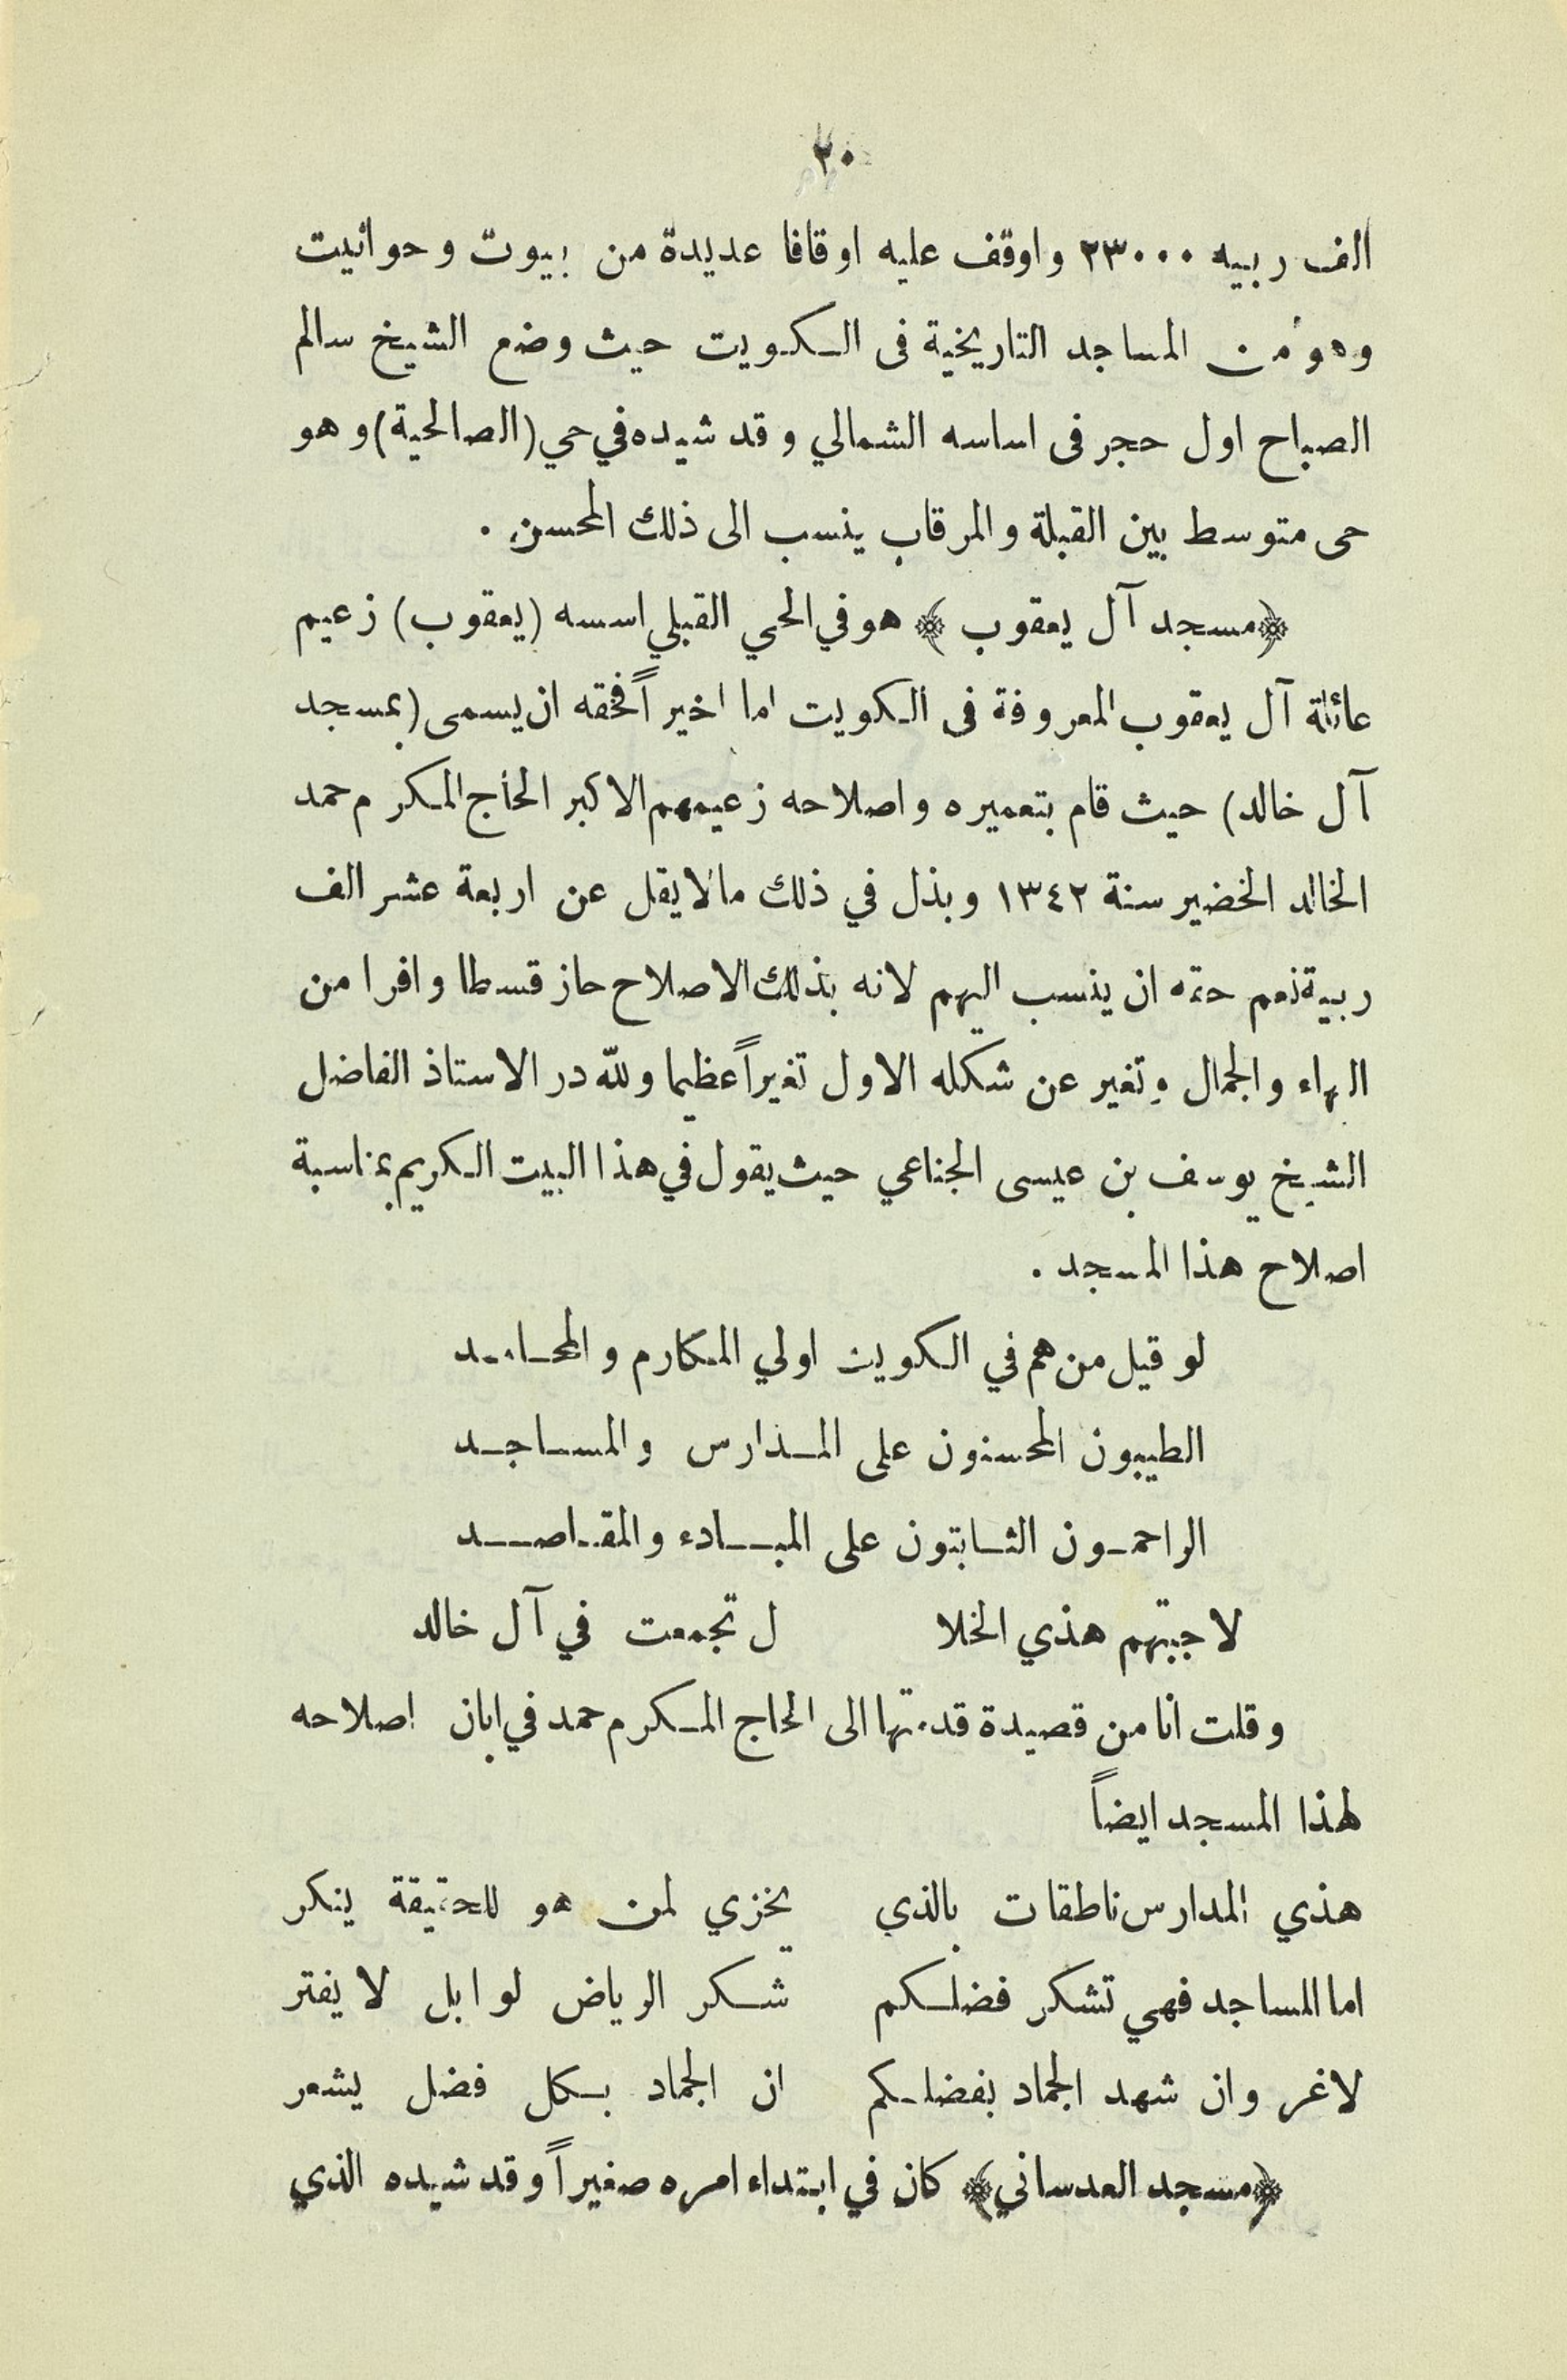 ٢٠
الف ربيه ٢٣٠٠٠ واوقف عليه اوقافا عديدة من بيوت وحوانيت
وهو من المساجد التاريخية فى الكويت حيث وضع الشيخ سالم
الصباح اول حجر فى اساسه الشمالي وقد شيده في حي (الصالحية) وهو
حى متوسط بين القبلة والمرقاب ينسب الى ذلك المحسن .
﴿مسجد آل يعقوب﴾ هو في الحي القبلي اسسه (يعقوب) زعيم
عائلة آل يعقوب المعروفة فى الكويت اما اخيراً فحقه ان يسمى (بمسجد
آل خالد) حيث قام بتعميره واصلاحه زعيمهم الاكبر الحاج المكرم حمد
الخالد الخضير سنة ١٣٤٢ وبذل في ذلك مالا يقل عن اربعة عشر الف
ربية نعم حقه ان ينسب اليهم لانه بذلك الاصلاح حاز قسطا وافرا من
البهاء والجمال وتغير عن شكله الاول تغيراً عظيما ولله در الاستاذ الفاضل
الشيخ يوسف بن عيسى الجناعي حيث يقول في هذا البيت الكريم بمناسبة
اصلاح هذا المسجد .
لو قيل من هم في الكويت اولي المكارم والمحامد
الطيبون المحسنون على المدارس والمساجد
الراحمون الثابتون على المبادء والمقاصد
لاجبتهم هذي الخلا ل تجمعت في آل خالد
وقلت انا من قصيدة قدمتها الى الحاج المكرم حمد في ابان اصلاحه
لهذا المسجد ايضاً
هذي المدارس ناطقات بالذي يخزي لمن هو للحقيقة ينكر
اما المساجد فهي تشكر فضلكم شكر الرياض لوابل لا يفتر
لاغرو ان شهد الجماد بفضلكم ان الجماد بكل فضل يشعر
﴿مسجد العدساني﴾ كان في ابتداء امره صغيراً وقد شيده الذي